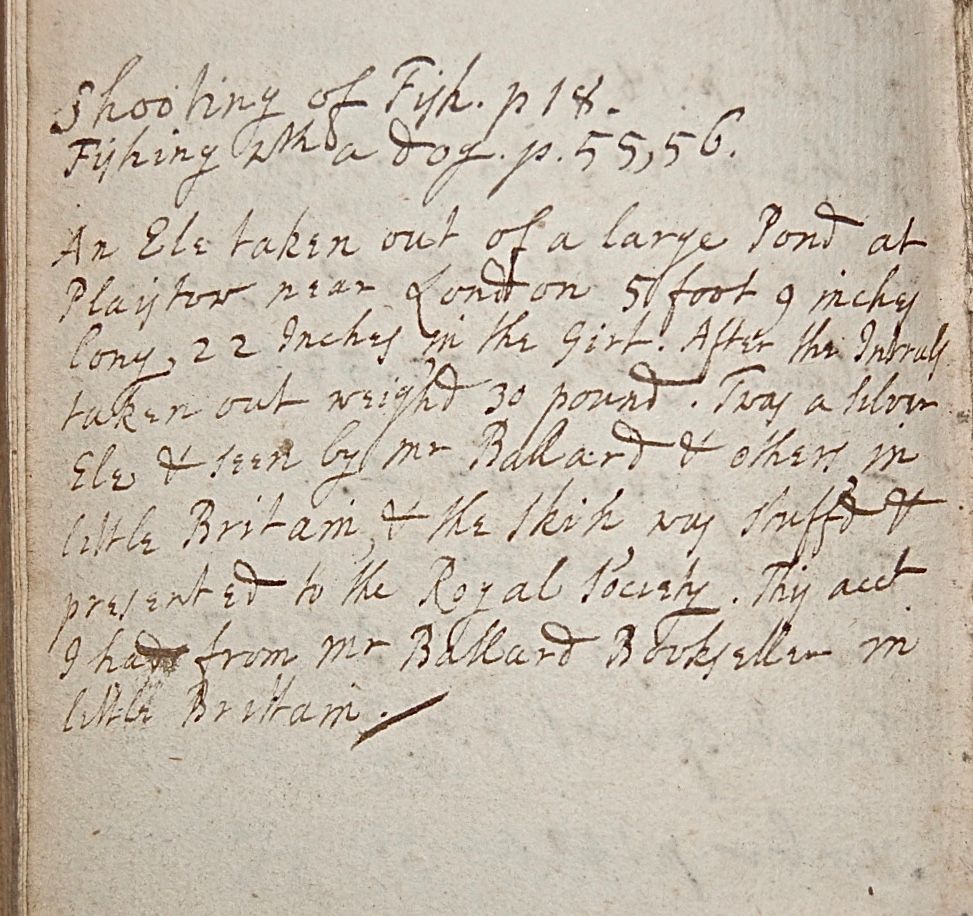 Shooting of Fish. p 18.
Fishing wth a dog. p. 55, 56.
An Ele taken out of a large Pond at
Plaistow near London 5 foot 9 inches
long, 22 Inches in the Girt. After the Intrals
taken out weigh'd 30 pound. Twas a silver
Ele & seen by mr Ballard & others in
little Britain, & the skin was stuff'd &
presented to the Royal Society. This acct
I had from mr Ballard Bookseller in
little Brittain.